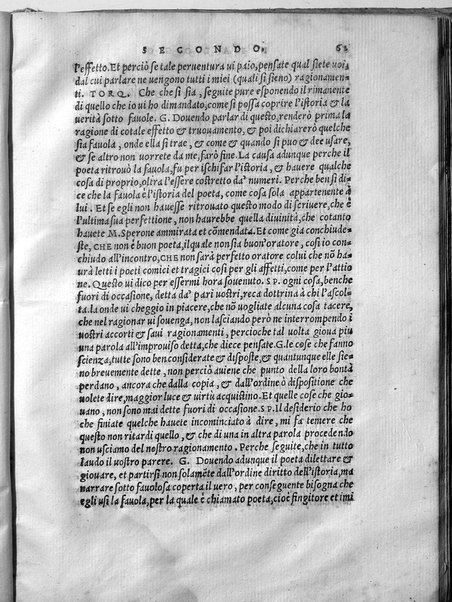 SECONDO. 62
l'effetto. Et perciò se tale perventura ui paio, pensate qual siete voi,
dal cui parlare ne uengono tutti i miei (quali si sieno) ragionamen-
ti. TORQ. Che che si sia, seguite pure esponendo il rimanente
di quello che io ui ho dimandato, come si possa coprire l'istoria & la
verità sotto fauole. G. Douendo parlar di questo, renderò prima la
ragione di cotale effetto & truouamento, & poi dichiarerò quelche
sia fauola, onde ella si trae, & come & quando si puo & dee usare,
& se altro non uorrete da me, farò fine. La causa adunque perche il
poeta ritrouò la fauola, fu per ischifar l'istoria, & hauere qualche
cosa di proprio, oltra l'essere costretto da' numeri. Perche ben si di-
ce che la fauola è l'istoria del poeta, come cosa sola appartenente à
lui. Et se egli non hauesse ritrouato questo modo di scriuere, che è
l'ultima sua perfettione, non haurebbe quella diuinità, che cotanto
hauete M. Sperone ammirata et cōmendata. Et come gia conchiude-
ste, CHE non è buon poeta, il quale non sia buon'oratore, cosi io con-
chiudo all'incontro, CHE non sarà perfetto oratore colui che nō ha-
urà letti i poeti comici et tragici cosi per gli affetti, come per l'attio
ne. Questo ui dico per essermi hora souenuto. SP. ogni cosa, benche
fuori di occasione, detta da' pari uostri, reca dottrina à chi l'ascol-
ta. La onde ui cheggio in piacere, che nō uogliate alcuna cosa tacere,
che nel ragionar ui souenga, non lasciando però ne interrompendo i
uostri accorti & saui ragionamenti, percioche tal uolta gioua piu
una parola all'improuiso detta, che diece pensate. G. le cose che fanno
scienza, tutte sono ben considerate & disposte, & quantunque elle sie-
no breuemente dette, non perciò auiene che punto della loro bontà
perdano, ancora che dalla copia, & dall'ordine ò dispositione che
uolete dire, maggior luce & uirtù acquistino. Et quelle cose che gio-
uano, non sono mai dette fuori di occasione. SP. Il desiderio che ho
che finiate quelche hauete incominciato à dire, mi fa temere che
questo non ritardi quello, & che di una in altra parola procedendo
non usciamo del nostro ragionamento. Perche seguite, che in tutto
laudo il uostro parere. G. Douendo adunque il poeta dilettare &
giouare, et partirsi non solamēte dall'ordine diritto dell'istoria, ma
narrare sotto fauolosa coperta il uero, per conseguente bisogna che
egli usi la fauola, per la quale è chiamato poeta, cioè fingitore et imi